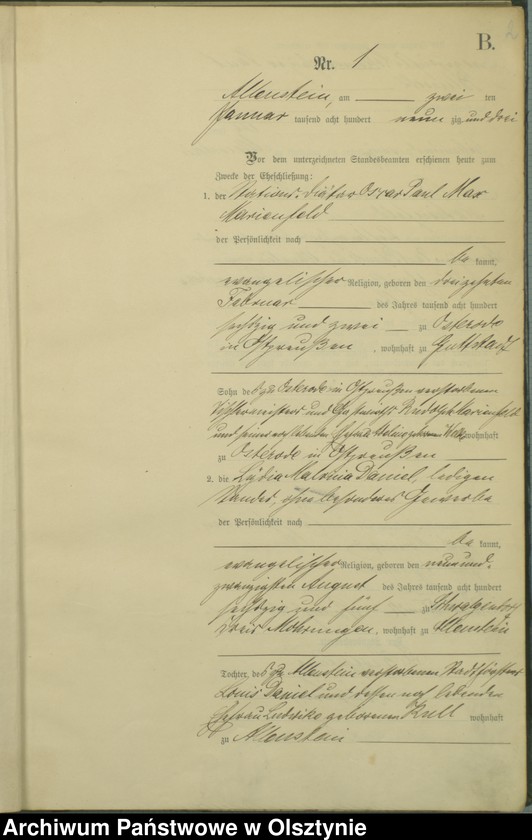 B.
Nr. 1
Allenstein, am zwei ten
Januar tausend acht hundert neun zig und drei
Vor dem unterzeichneten Standesbeamten erschienen heute zum
Zwecke der Eheschließung:
1. der Stations-Diätar Oscar Paul Max
Marienfeld
der Persönlichkeit nach
be kannt,
evangelischer Religion, geboren den dreizehnten
Februar des Jahres tausend acht hundert
sechzig und zwei zu Osterode
in Ostpreußen, wohnhaft zu Guttstadt
Sohn des zu Osterode in Ostpreußen verstorbenen
und Gastwirths Rudolph Marienfeld
und seiner Ehefrau wohnhaft
zu Osterode in Ostpreußen
2. die Lydia Malwina Daniel, ledigen
Standes, ohne besonderes Gewerbe
der Persönlichkeit nach
be kannt,
evangelischer Religion, geboren den neunund-
zwanzigsten August des Jahres tausend acht hundert
sechzig und fünf zu
Kreis Mohrungen, wohnhaft zu Allenstein
Tochter des zu Allenstein verstorbenen Stadtförsters
Louis Daniel und dessen noch lebenden
Ehefrau Ludwike geborenen Krell wohnhaft
zu Allenstein
Archiwum Państwowe w Olsztynie